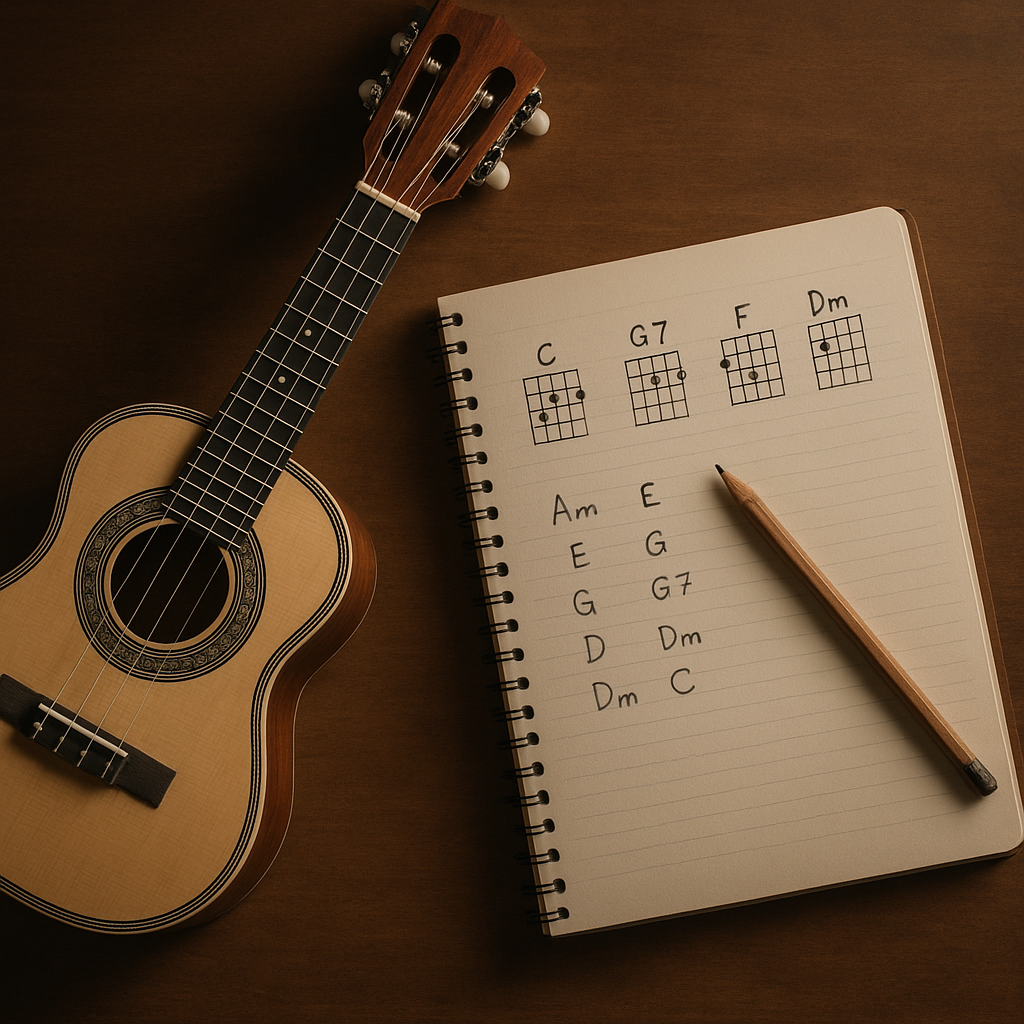 C G7 F Dm
Am E
E G
G G7
D Dm
Dm C